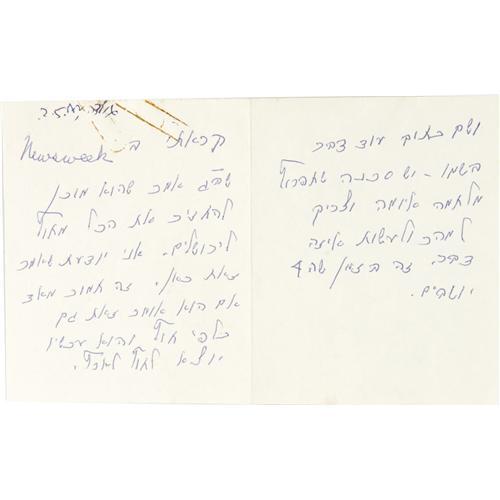 קראתי ב Newsweek
שב"ג אמר שהוא מוכן
להחזיר את הכל מחוץ
לירושלים. אני יודעת שאמר
זאת כאן. זה חמור מאד
אם הוא אומר זאת גם
כלפי חוץ והוא עכשיו
יוצא לחוץ לארץ.
ושם כתוב עוד דבר
בשמו - יש סכנה שתפרוץ
מלחמה איומה וצריך
למהר ולעשות איזה
דבר. זה בזמן שה 4
יושבים.